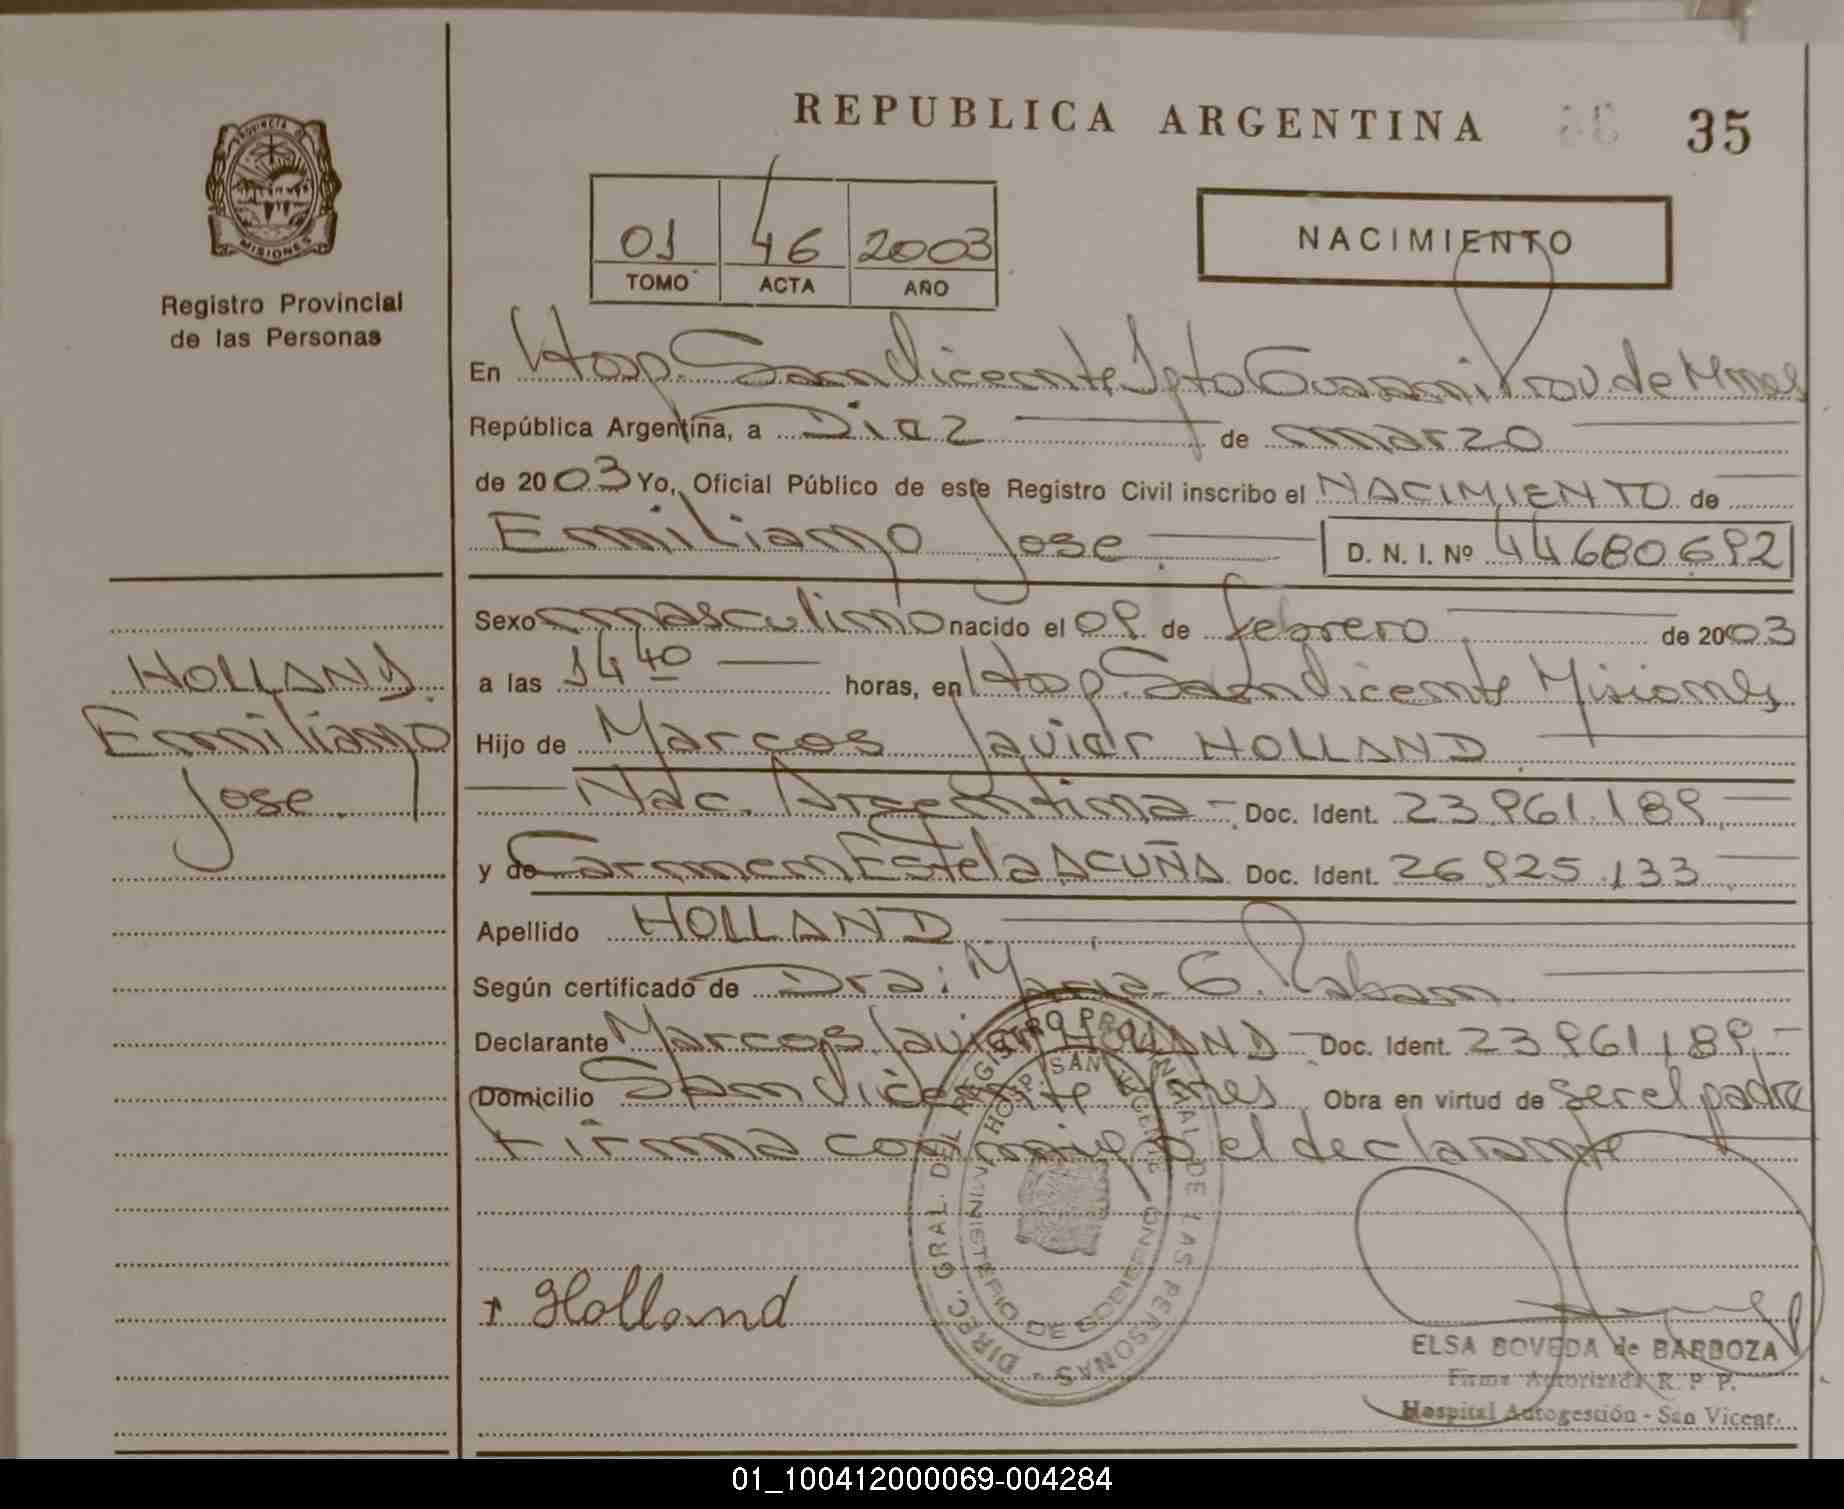 REPUBLICA ARGENTINA 35
PROVINCIA DE MISIONES
Registro Provincial
de las Personas
01 46 2003
TOMO ACTA AÑO
NACIMIENTO
En Hosp. San Vicente Dpto Guarani Prov. de Mnes
República Argentina, a Diez de marzo
de 2003 Yo, Oficial Público de este Registro Civil inscribo el NACIMIENTO de
Emiliano Jose D. N. I. Nº 44680692
Sexo masculino nacido el 09 de febrero de 2003
a las 14 40 horas, en Hosp. San Vicente Misiones
Hijo de Marcos Javier HOLLAND
Nac. Argentina - Doc. Ident. 23.961.189
y de Carmen Estela ACUÑA Doc. Ident. 26925.133
Apellido HOLLAND
Según certificado de Dra: Maria G.
Declarante Marcos Javier HOLLAND - Doc. Ident. 23961189,-
Domicilio San Vicente Mnes Obra en virtud de ser el padre
Firma conmigo el declarante
HOLLAND
Emiliano
Jose
Holland
DIREC. GRAL. DEL REGISTRO PROVINCIAL DE LAS PERSONAS -
HOSP. SAN VICENTE
MINISTERIO DE GOBIERNO
ELSA BOVEDA de BARBOZA
Firma Autorizada R. P. P.
Hospital Autogestión - San Vicente
01_100412000069-004284